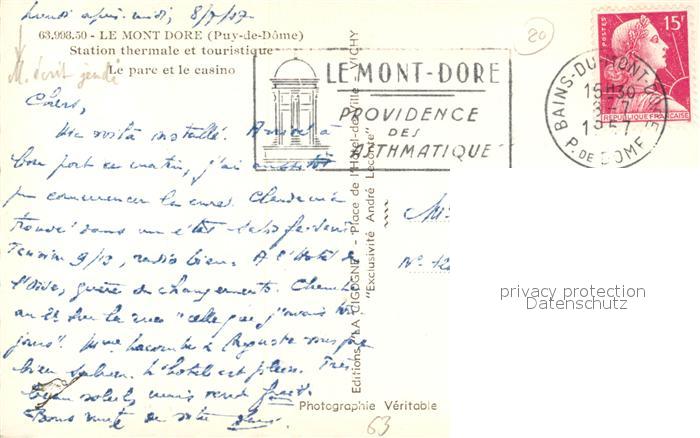 Lundi après-midi, 8/7/57
20
63.998.50 - LE MONT DORE (Puy-de-Dôme)
Station thermale et touristique
Le parc et le casino
M. écrit jeudi
Chers,
Me voilà installé. Arrivé à
bon port ce matin, j'ai
pu commencer la cure. Claude m'a
trouvé dans un état satisfaisant
Tension 9/13, radio bien. A l'Hôtel de
l'Oise, guère de changements. Chambre
au 2e sur la rue "celle que j'avais tou-
jours". Mme Lacombe &
bien. L'hôtel est plein. Très
beau soleil, mais vent froid.
Bons
LE MONT-DORE
PROVIDENCE
DES
ASTHMATIQUES
BAINS-DU-MONT-DORE
15H30
8-7
1957
P. DE DOME
POSTES
15F
REPUBLIQUE FRANÇAISE
Editions "LA CIGOGNE" - Place de l'Hôtel-de-Ville - VICHY
"Exclusivité André Leconte"
M.
N° 12
privacy protection
Datenschutz
Photographie Véritable
63